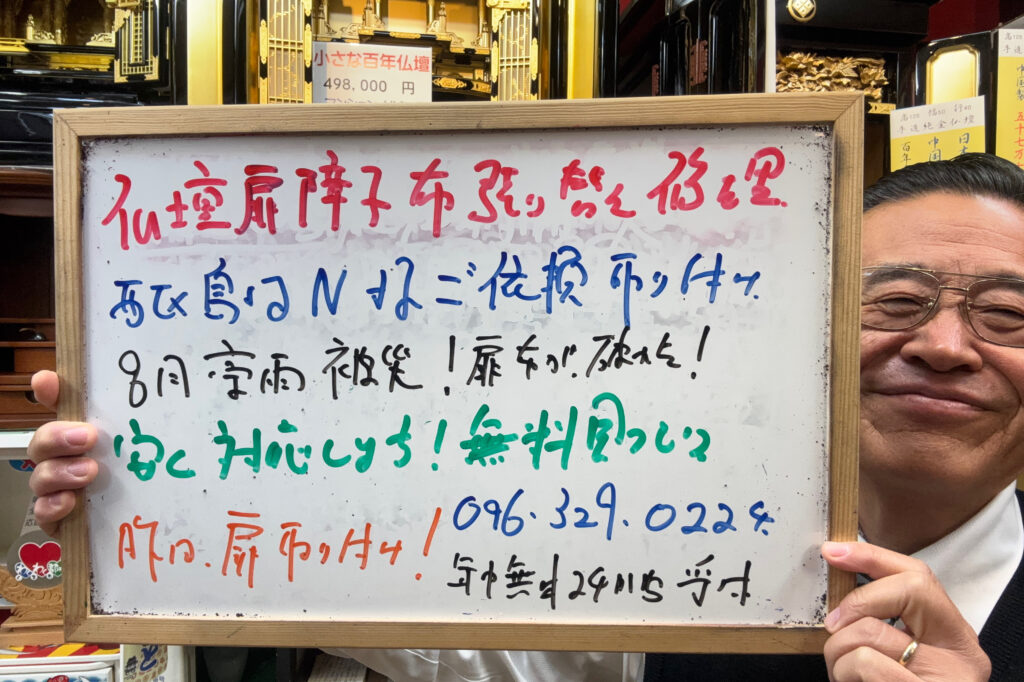 小さな百年仏壇
498,000 円
仏壇扉障子布張り替え修理
配島町N様ご依頼取り付け
8月豪雨被災！扉布が破れた！
安く対応します！無料見つもり
昨日、扉取り付け！
096.329.0224
年中無休24時間受付
手造純金仏壇